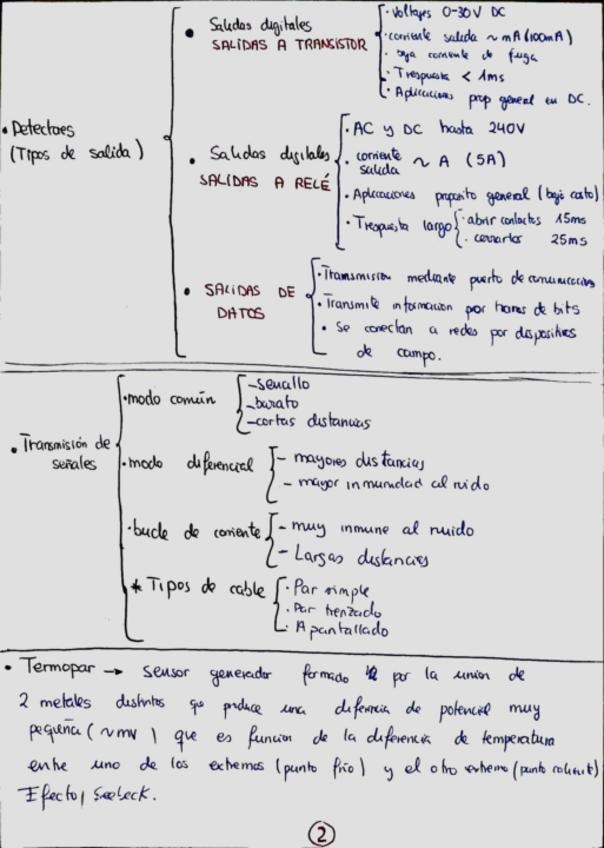 • Detectores
(Tipos de salida)
• Salidas digitales
SALIDAS A TRANSISTOR
· Voltajes 0-30V DC
· corriente salida ~ mA (100mA)
· baja corriente de fuga
· Trespuesta < 1ms
· Aplicaciones prop general en DC.
• Salidas digitales
SALIDAS A RELÉ
· AC y DC hasta 240V
· corriente salida ~ A (5A)
· Aplicaciones proposito general (bajo costo)
· Trespuesta largo
· abrir contactos 15ms
· cerrarlos 25ms
• SALIDAS DE
DATOS
· Transmisión mediante puerto de comunicación
· Transmite información por tramas de bits
• Se conectan a redes por dispositivos
de campo.
• Transmisión de
señales
· modo común
- sencillo
- barato
- cortas distancias
· modo diferencial
- mayores distancias
- mayor inmunidad al ruido
· bucle de corriente
- muy inmune al ruido
- Largas distancias
* Tipos de cable
· Par simple
· Par trenzado
· Apantallado
• Termopar → sensor generador formado por la union de
2 metales distintos que produce una diferencia de potencial muy
pequeña (~mv) que es funcion de la diferencia de temperatura
entre uno de los extremos (punto frío) y el otro extremo (punto caliente)
Efecto Seebeck.
2